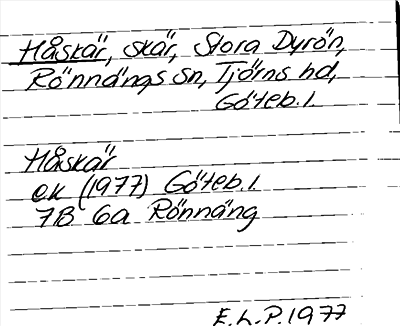 Håskär, skär, Stora Dyrön,
Rönnängs sn, Tjörns hd,
Göteb. l.
Håskär
ek (1977) Göteb. l.
7B 6a Rönnäng
E.L.P. 1977